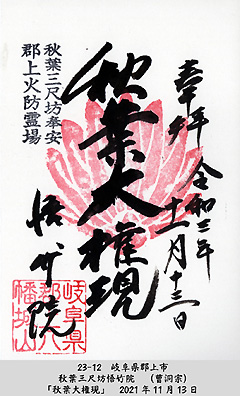 奉拝 令和三年
十一月十三日
秋葉大権現
秋葉三尺坊奉安
郡上火防霊場
悟竹院
岐阜県
郡八
幡城山
23-12 岐阜県郡上市
秋葉三尺坊悟竹院 (曹洞宗)
「秋葉大権現」 2021年11月13日